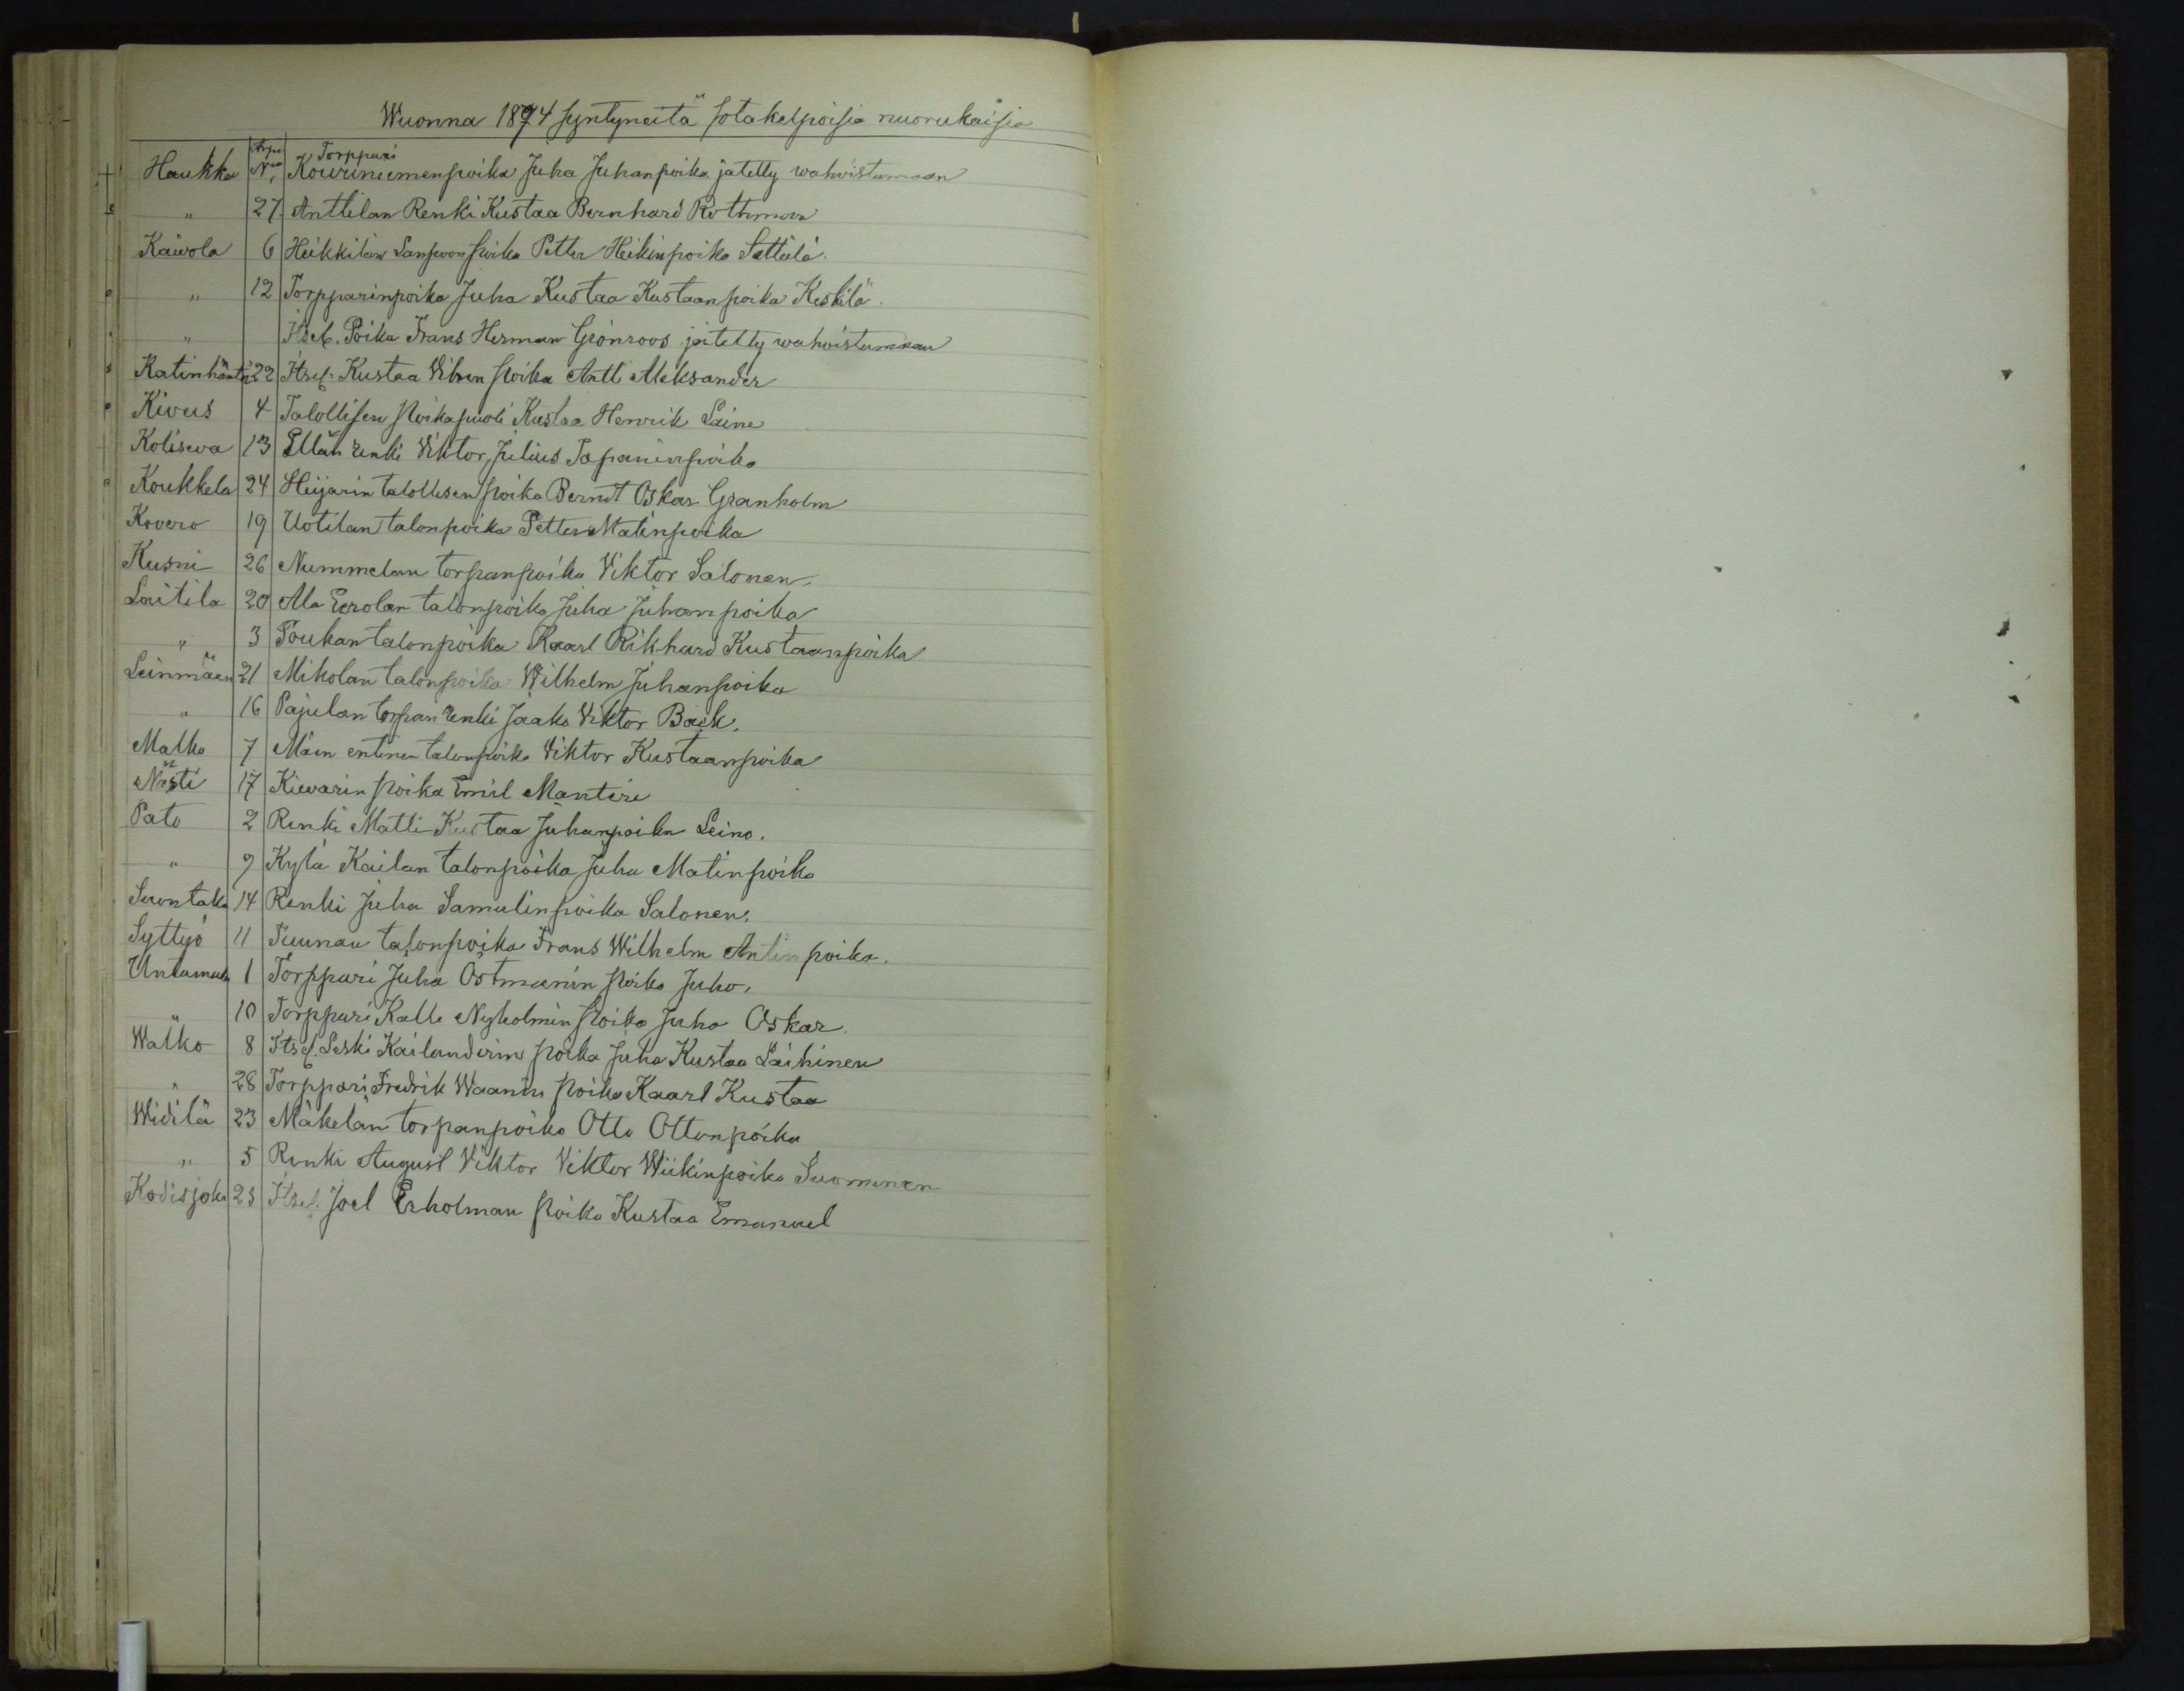 Wuonna 1874 syntyneitä sotakelpoisia nuorukaisia
Arpa
Torppari
Haukka No, Kouvuniemenpoika Juha Juhanpoika jätetty wahvistumaan
" 27 Anttilan Renki Kustaa Bernhard Rothman
Kaivola 6 Heikkilän Lampuon poika Petter Heikinpoika Sattilä.
" 12 Torpparinpoika Juha Kustaa Kustaanpoika Keskilä.
" Itsel. Poika Frans Herman Grönroos jätetty wahvistumaan
Katinhäntä 22 Itsel. Kustaa Vibrn poika Antti Aleksander
Kivus 4 Talollisen poikapuoli Kustaa Henrik Laine
Koliseva 13 Ellän renki Viktor Julius Tapaninpoika
Koukkela 24 Heijarin talollisen poika Berndt Oskar Granholm
Kovero 19 Uotilan talonpoika Petter Matinpoika
Kusni 26 Nummelan torpanpoika Viktor Salonen
Laitila 20 Ala Eerolan talonpoika Juha Juhanpoika
" 3 Poukan talonpoika Kaarl Rikhard Kustaanpoika
Leinmäen 21 Mikolan talonpoika Wilhelm Juhanpoika
" 16 Pajulan torpan renki Jaako Viktor Bäck.
Malko 7 Mäen entinen talonpoika Viktor Kustaanpoika
Nästi 17 Kievarin poika Emil Mantere
Pato 2 Renki Matti Kustaa Juhanpoika Leino.
" 9 Kylä Kailan talonpoika Juha Matinpoika
Suontaka 14 Renki Juha Samulinpoika Salonen.
Syttyö 11 Tuunan talonpoika Frans Wilhelm Antinpoika.
Untamala 1 Torppari Juha Östmanin poika Juho.
" 10 Torppari Kalle Nyholmin poika Juho Oskar.
Walko 8 Itsel. Leski Kailanderin poika Juha Kustaa Laihinen
" 28 Torppari Fredrik Waanin poika Kaarl Kustaa
Widilä 23 Mäkelän torpanpoika Otto Ottonpoika
" 5 Renki August Viktor Viktor Wiikinpoika Suominen
Kodisjoki 25 Itsel. Joel Erholman poika Kustaa Emanuel